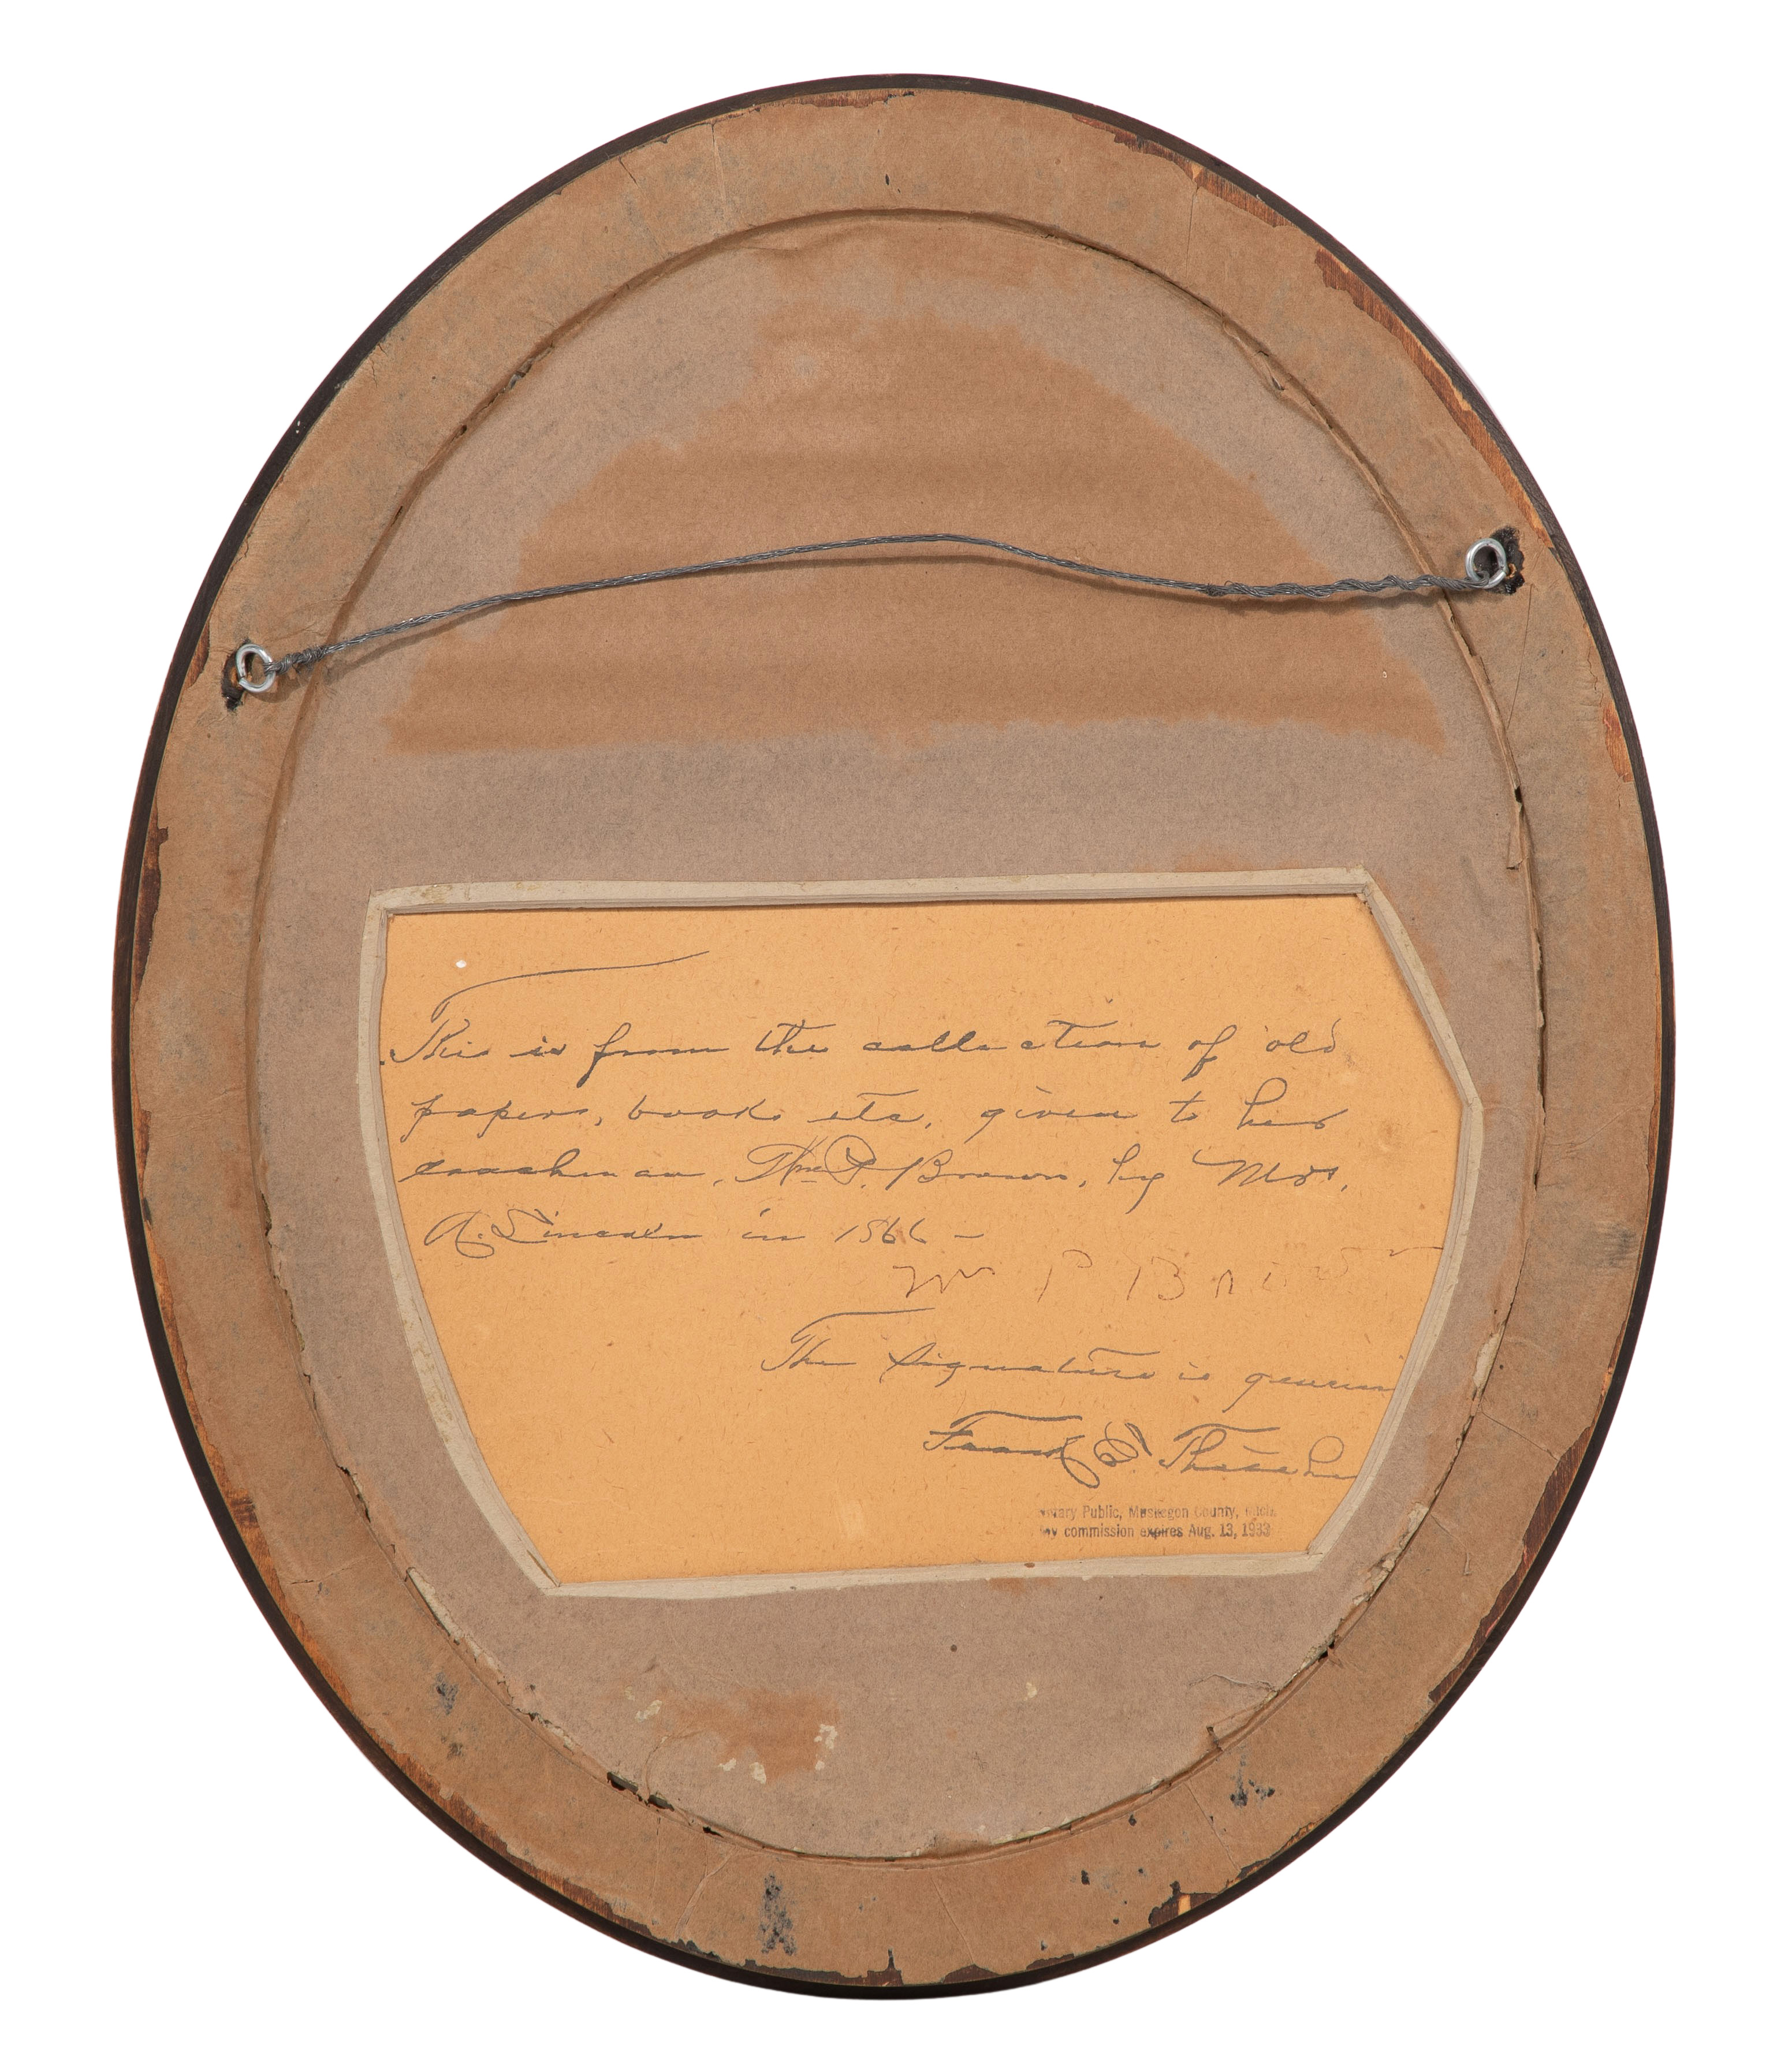 This is from the collection of old
papers, books etc, given to her
coachman, Wm P. Brown, by Mrs.
A. Lincoln in 1866 –
Wm P Brown
The signature is genuin
Frank E. Thatche
otary Public, Muskegon County, Mich.
My commission expires Aug. 13, 1933